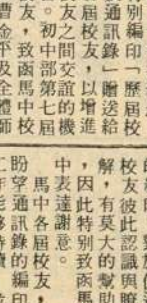 別編印「歷屆校
通訊錄」贈送給
屆校友，以增進
友之間交誼的機
。初中部第七屆
友，致函馬中校
曹金平及全體師
校友彼此認識與瞭
解，有莫大的幫助
，因此特別致函馬
中表達謝意。
馬中各屆校友，
盼望通訊錄的編印